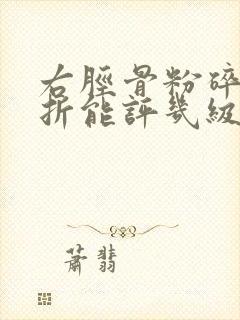 右脛骨粉碎
折能評幾級
蕭翡